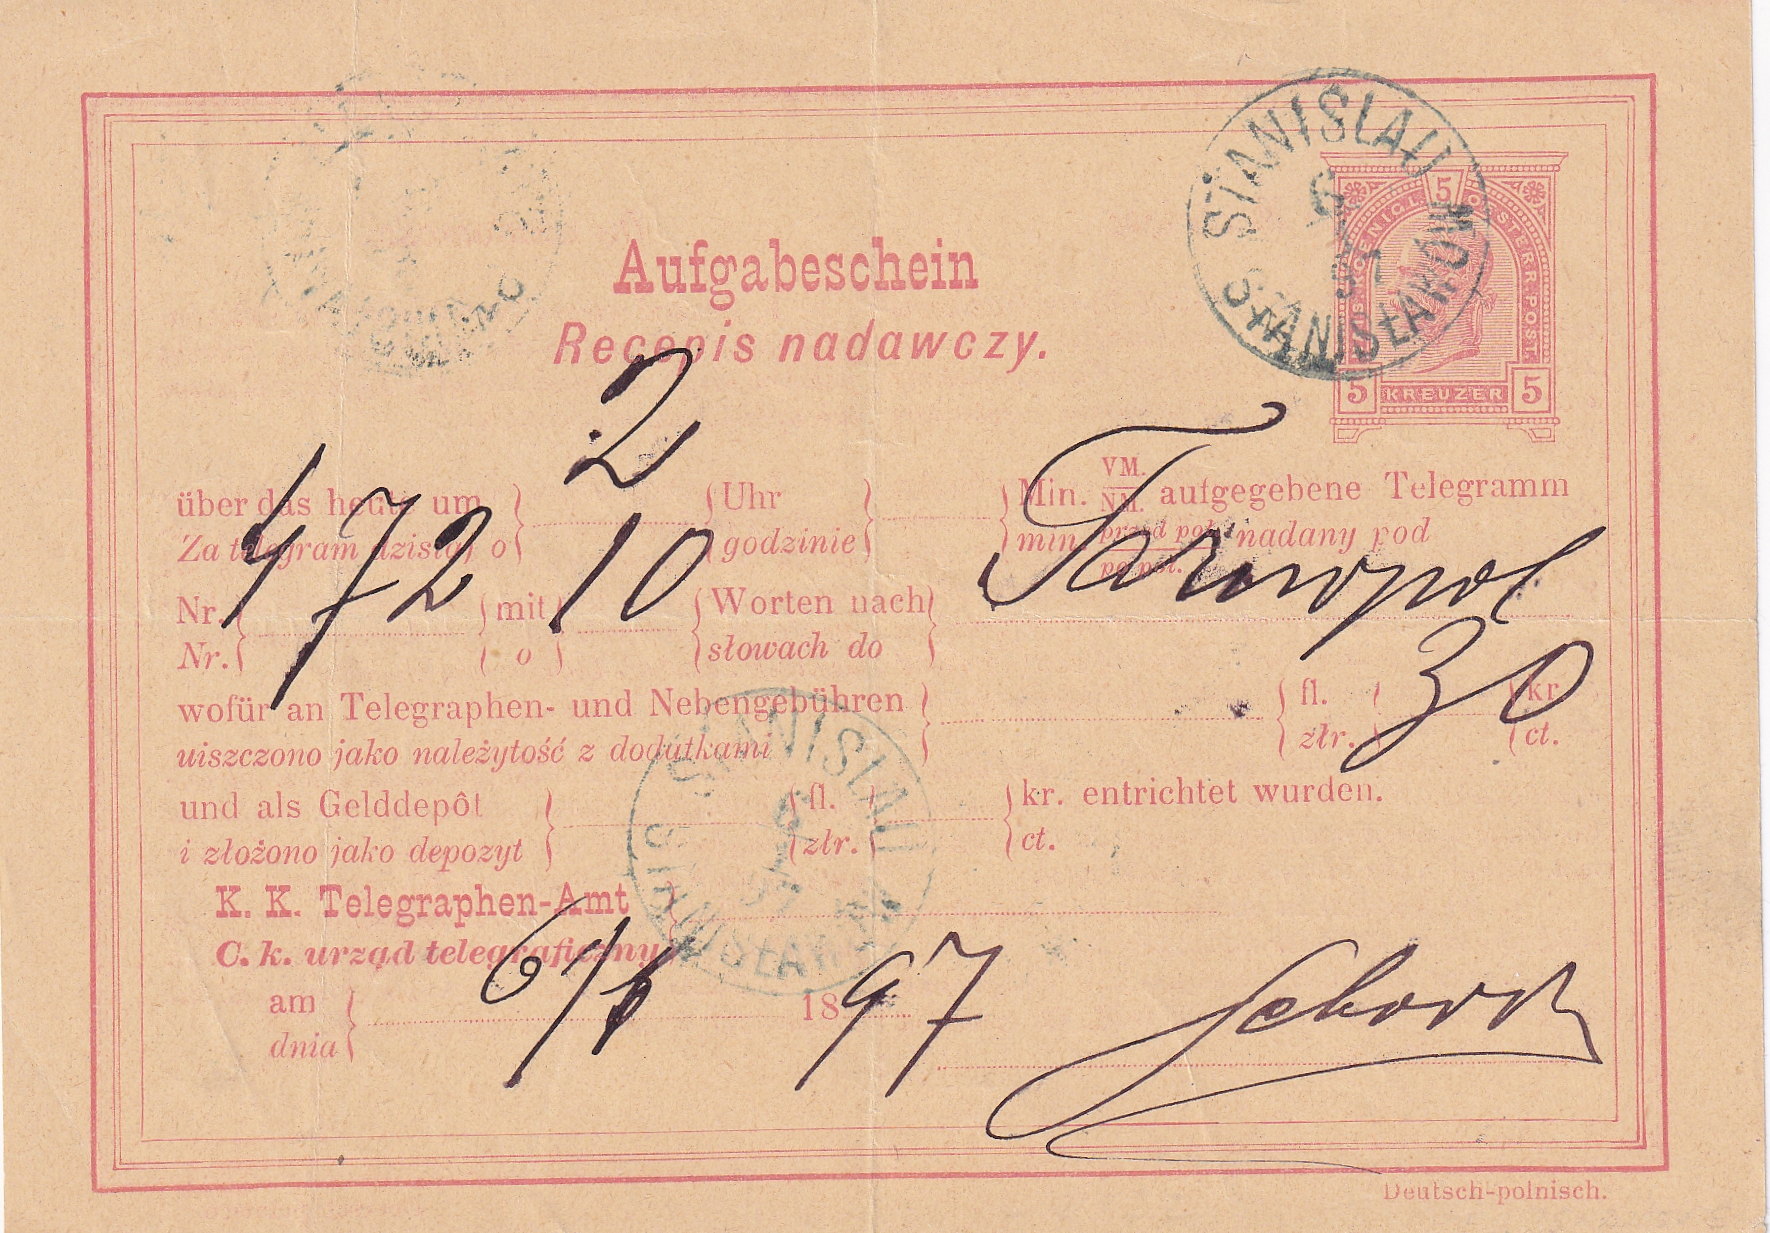 STANISLAU
6
97
STANISŁAWÓW
5
KAIS. KÖNIGL. ÖSTERR. POST.
5 KREUZER 5
Aufgabeschein
Recepis nadawczy.
2
über das heute um } { Uhr } } Min. VM./NM. aufgegebene Telegramm
Za telegram dzisiaj o } { godzinie } } min. przed poł./po poł. nadany pod
Nr. { 472 } mit } 10 { Worten nach } Tarnopol
Nr. { } o } { słowach do }
wofür an Telegraphen- und Nebengebühren } { fl. { 30 { kr.
uiszczono jako należytość z dodatkami } { złr. { { ct.
und als Gelddepôt } { fl. { } kr. entrichtet wurden.
i złożono jako depozyt } { złr. { } ct.
STANISLAU
6
97
STANISŁAWÓW
K. K. Telegraphen-Amt }
C. k. urząd telegraficzny }
am { 6/6 1897
dnia {
Deutsch-polnisch.